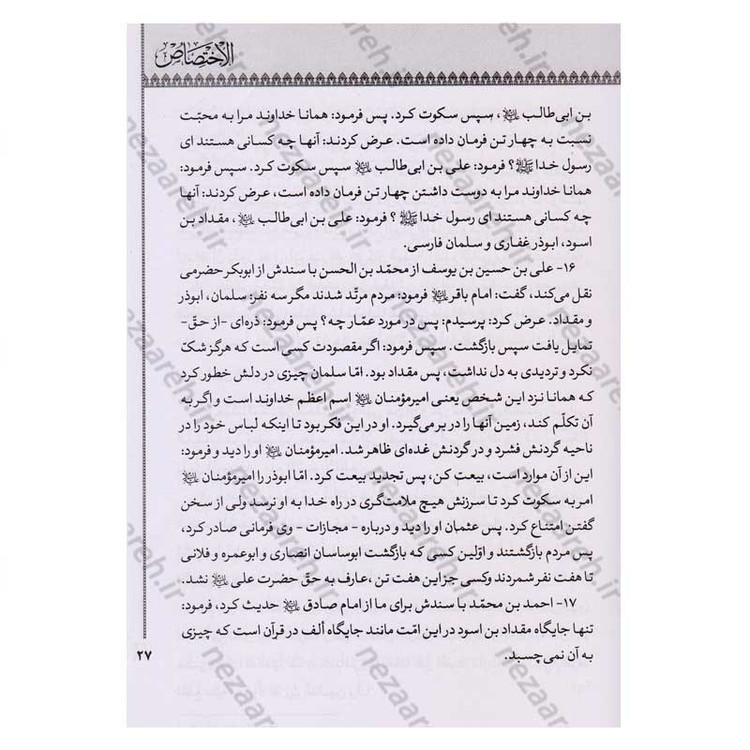 الاختصاص
بن ابی‌طالب ﷷ، سپس سکوت کرد. پس فرمود: همانا خداوند مرا به محبّت
نسبت به چهار تن فرمان داده است. عرض کردند: آنها چه کسانی هستند ای
رسول خدا ﷺ؟ فرمود: علی بن ابی‌طالب سپس سکوت کرد. سپس فرمود:
همانا خداوند مرا به دوست داشتن چهار تن فرمان داده است، عرض کردند: آنها
چه کسانی هستند ای رسول خدا ﷺ؟ فرمود: علی بن ابی‌طالب، مقداد بن
اسود، ابوذر غفاری و سلمان فارسی.
۱۶- علی بن حسین بن یوسف از محمّد بن الحسن با سندش از ابوبکر حضرمی
نقل می‌کند، گفت: امام باقر فرمود: مردم مرتّد شدند مگر سه نفر: سلمان، ابوذر
و مقداد. عرض کرد: پرسیدم: پس در مورد عمّار چه؟ پس فرمود: ذره‌ای -از حق-
تمایل یافت سپس بازگشت. سپس فرمود: اگر مقصودت کسی است که هرگز شکّ
نکرد و تردیدی به دل نداشت، پس مقداد بود. امّا سلمان چیزی در دلش خطور کرد
که همانا نزد این شخص یعنی امیرمؤمنان اسم اعظم خداوند است و اگر به
آن تکلّم کند، زمین آنها را در بر می‌گیرد. او در این فکر بود تا اینکه لباس خود را در
ناحیه گردنش فشرد و در گردنش غده‌ای ظاهر شد. امیرمؤمنان او را دید و فرمود:
این از آن موارد است، بیعت کن، پس تجدید بیعت کرد. امّا ابوذر را امیرمؤمنان
امر به سکوت کرد تا سرزنش هیچ ملامت‌گری در راه خدا به او نرسد ولی از سخن
گفتن امتناع کرد. پس عثمان او را دید و درباره - مجازات - وی فرمانی صادر کرد،
پس مردم بازگشتند و اوّلین کسی که بازگشت ابوساسان انصاری و ابوعمره و فلانی
تا هفت نفر شمردند وکسی جز این هفت تن، عارف به حقّ حضرت علی نشد.
۱۷- احمد بن محمّد با سندش برای ما از امام صادق حدیث کرد، فرمود:
تنها جایگاه مقداد بن اسود در این امّت مانند جایگاه ألف در قرآن است که چیزی
به آن نمی‌چسبد.
۲۷
nezaareh.ir